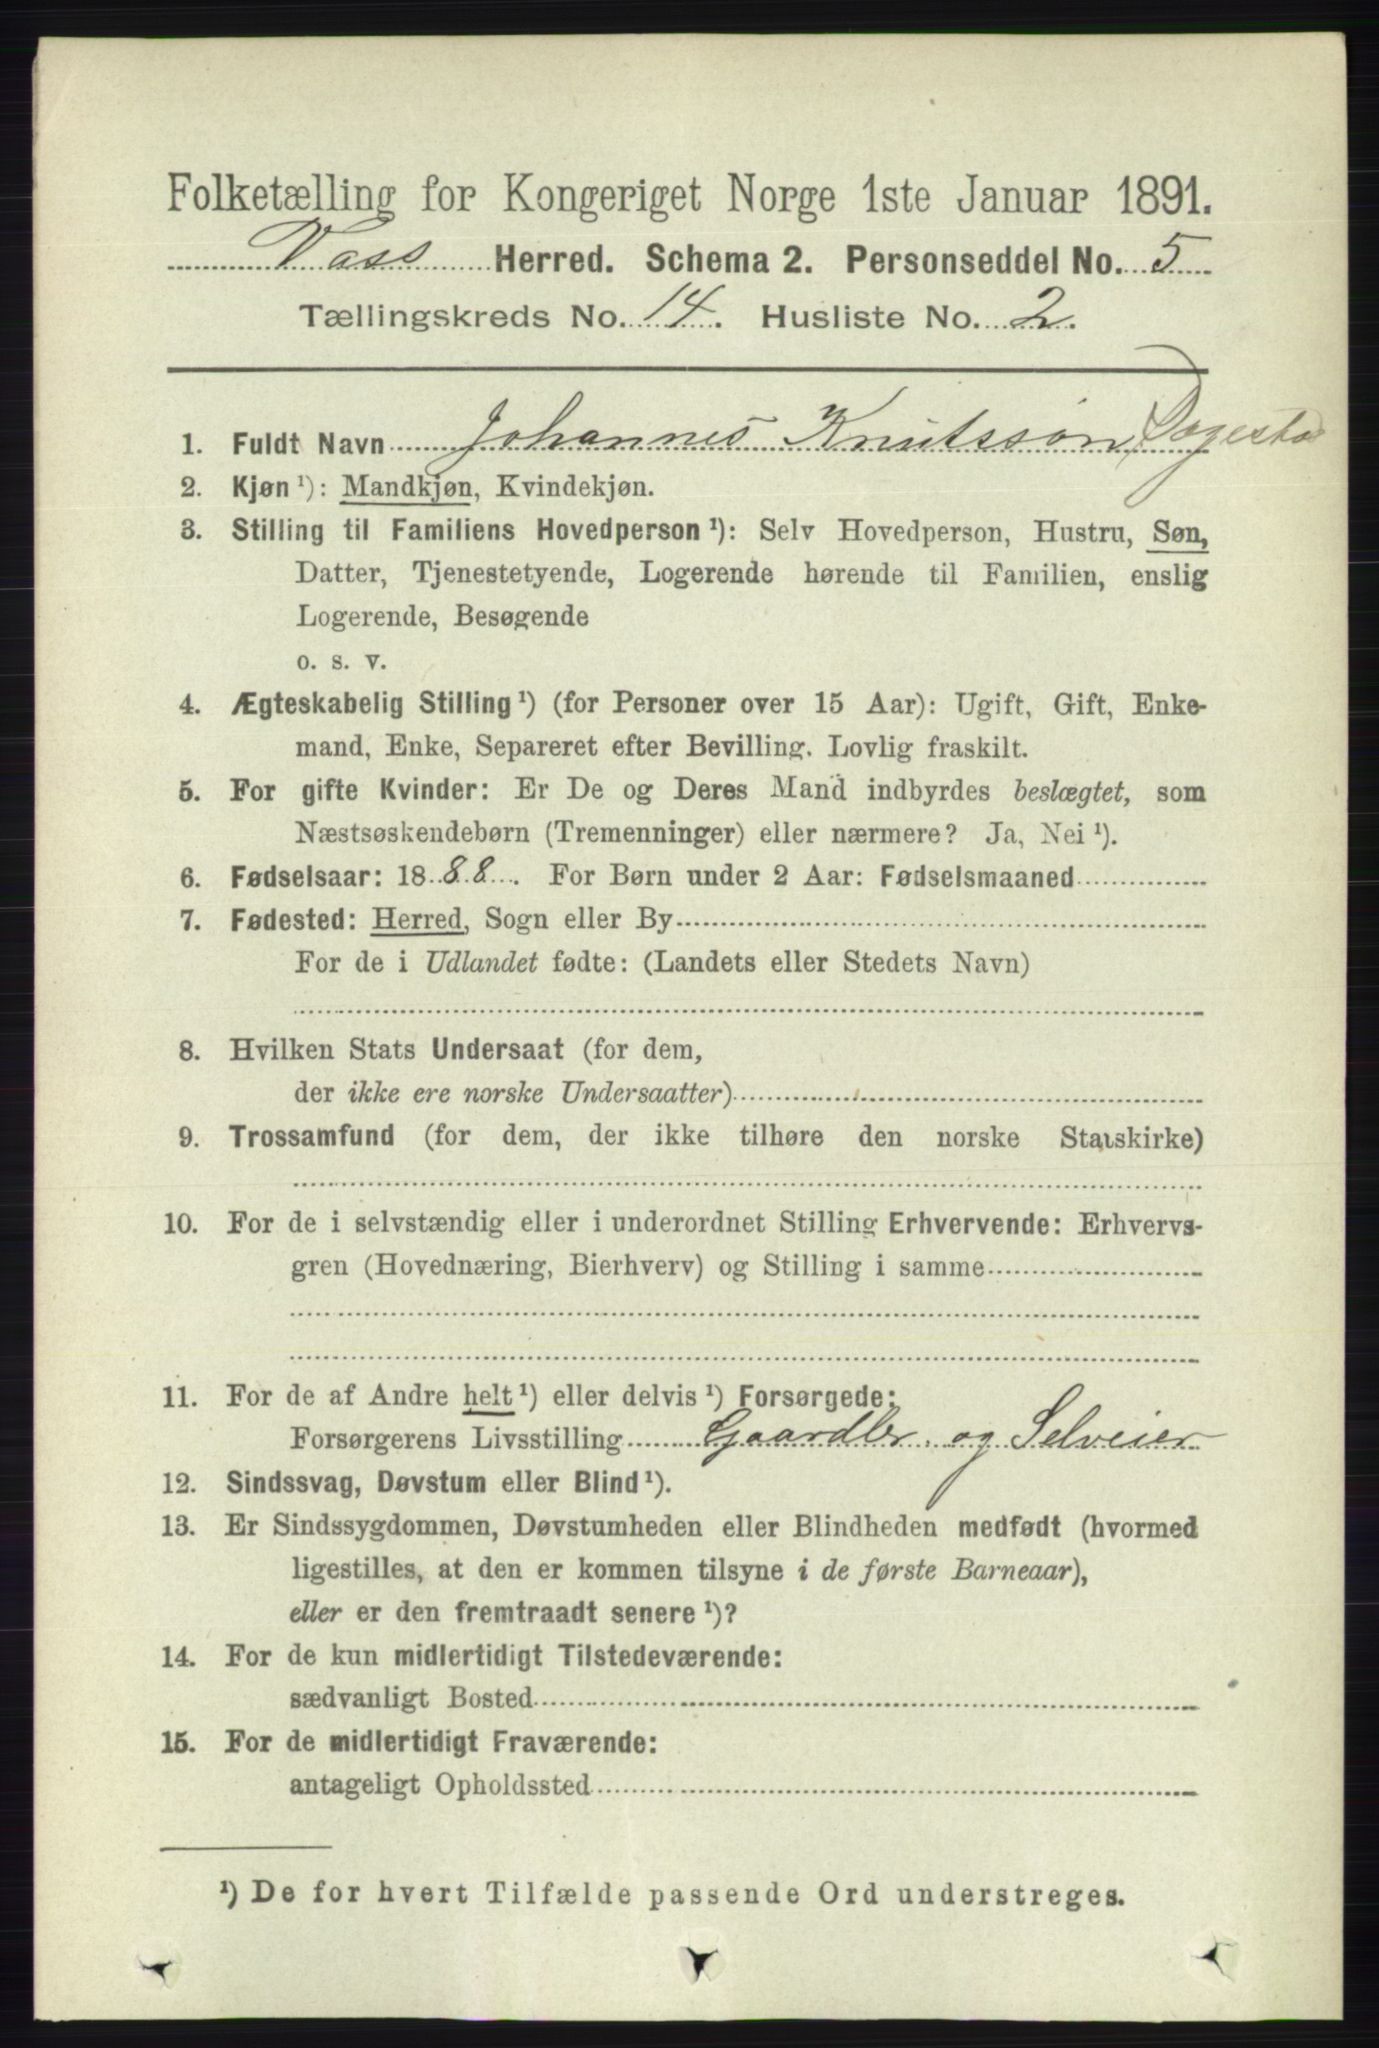 Folketælling for Kongeriget Norge 1ste Januar 1891.
Vass Herred. Schema 2. Personseddel No. 5
Tællingskreds No. 14. Husliste No. 2.
1. Fuldt Navn Johannes Knutssøn Dagestad
2. Kjøn ¹): Mandkjøn, Kvindekjøn.
3. Stilling til Familiens Hovedperson ¹): Selv Hovedperson, Hustru, Søn,
Datter, Tjenestetyende, Logerende hørende til Familien, enslig
Logerende, Besøgende
o. s. v.
4. Ægteskabelig Stilling ¹) (for Personer over 15 Aar): Ugift, Gift, Enke-
mand, Enke, Separeret efter Bevilling. Lovlig fraskilt.
5. For gifte Kvinder: Er De og Deres Mand indbyrdes beslægtet, som
Næstsøskendebørn (Tremenninger) eller nærmere? Ja, Nei ¹).
6. Fødselsaar: 1888. For Børn under 2 Aar: Fødselsmaaned
7. Fødested: Herred, Sogn eller By
For de i Udlandet fødte: (Landets eller Stedets Navn)
8. Hvilken Stats Undersaat (for dem,
der ikke ere norske Undersaatter)
9. Trossamfund (for dem, der ikke tilhøre den norske Statskirke)
10. For de i selvstændig eller i underordnet Stilling Erhvervende: Erhvervs-
gren (Hovednæring, Bierhverv) og Stilling i samme
11. For de af Andre helt ¹) eller delvis ¹) Forsørgede:
Forsørgerens Livsstilling Gaardbr. og Selveier
12. Sindssvag, Døvstum eller Blind ¹).
13. Er Sindssygdommen, Døvstumheden eller Blindheden medfødt (hvormed
ligestilles, at den er kommen tilsyne i de første Barneaar),
eller er den fremtraadt senere ¹)?
14. For de kun midlertidigt Tilstedeværende:
sædvanligt Bosted
15. For de midlertidigt Fraværende:
antageligt Opholdssted
¹) De for hvert Tilfælde passende Ord understreges.